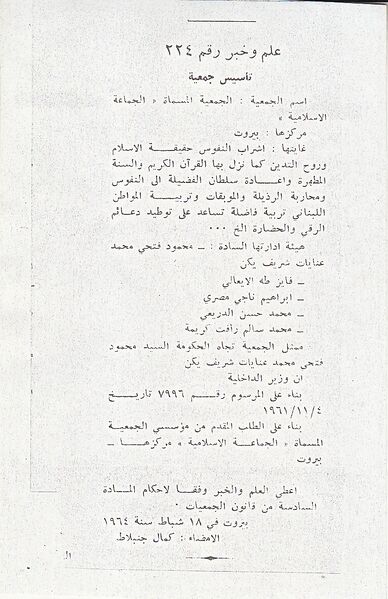 علم وخبر رقم ٢٢٤
تأسيس جمعية
اسم الجمعية : الجمعية المسماة « الجماعة
الاسلامية »
مركزها : بيروت
غايتها : اشراب النفوس حقيقة الاسلام
وروح التدين كما نزل بها القرآن الكريم والسنة
المطهرة واعادة سلطان الفضيلة الى النفوس
ومحاربة الرذيلة والموبقات وتربية المواطن
اللبناني تربية فاضلة تساعد على توطيد دعائم
الرقي والحضارة الخ ...
هيئة ادارتها السادة : ـ محمود فتحي محمد
عنايات شريف يكن
ـ فايز طه الايعالي
ـ ابراهيم ناجي مصري
ـ محمد حسن الدريعي
ـ محمد سالم رأفت كريمة
ممثل الجمعية تجاه الحكومة السيد محمود
فتحي محمد عنايات شريف يكن
ان وزير الداخلية
بناء على المرسوم رقم ٧٩٩٦ تاريخ
١٩٦١/١١/٤
بناء على الطلب المقدم من مؤسسي الجمعية
المسماة « الجماعة الاسلامية » مركزها ـ
بيروت
اعطى العلم والخبر وفقا لاحكام المادة
السادسة من قانون الجمعيات
بيروت في ١٨ شباط سنة ١٩٦٤
الامضاء : كمال جنبلاط